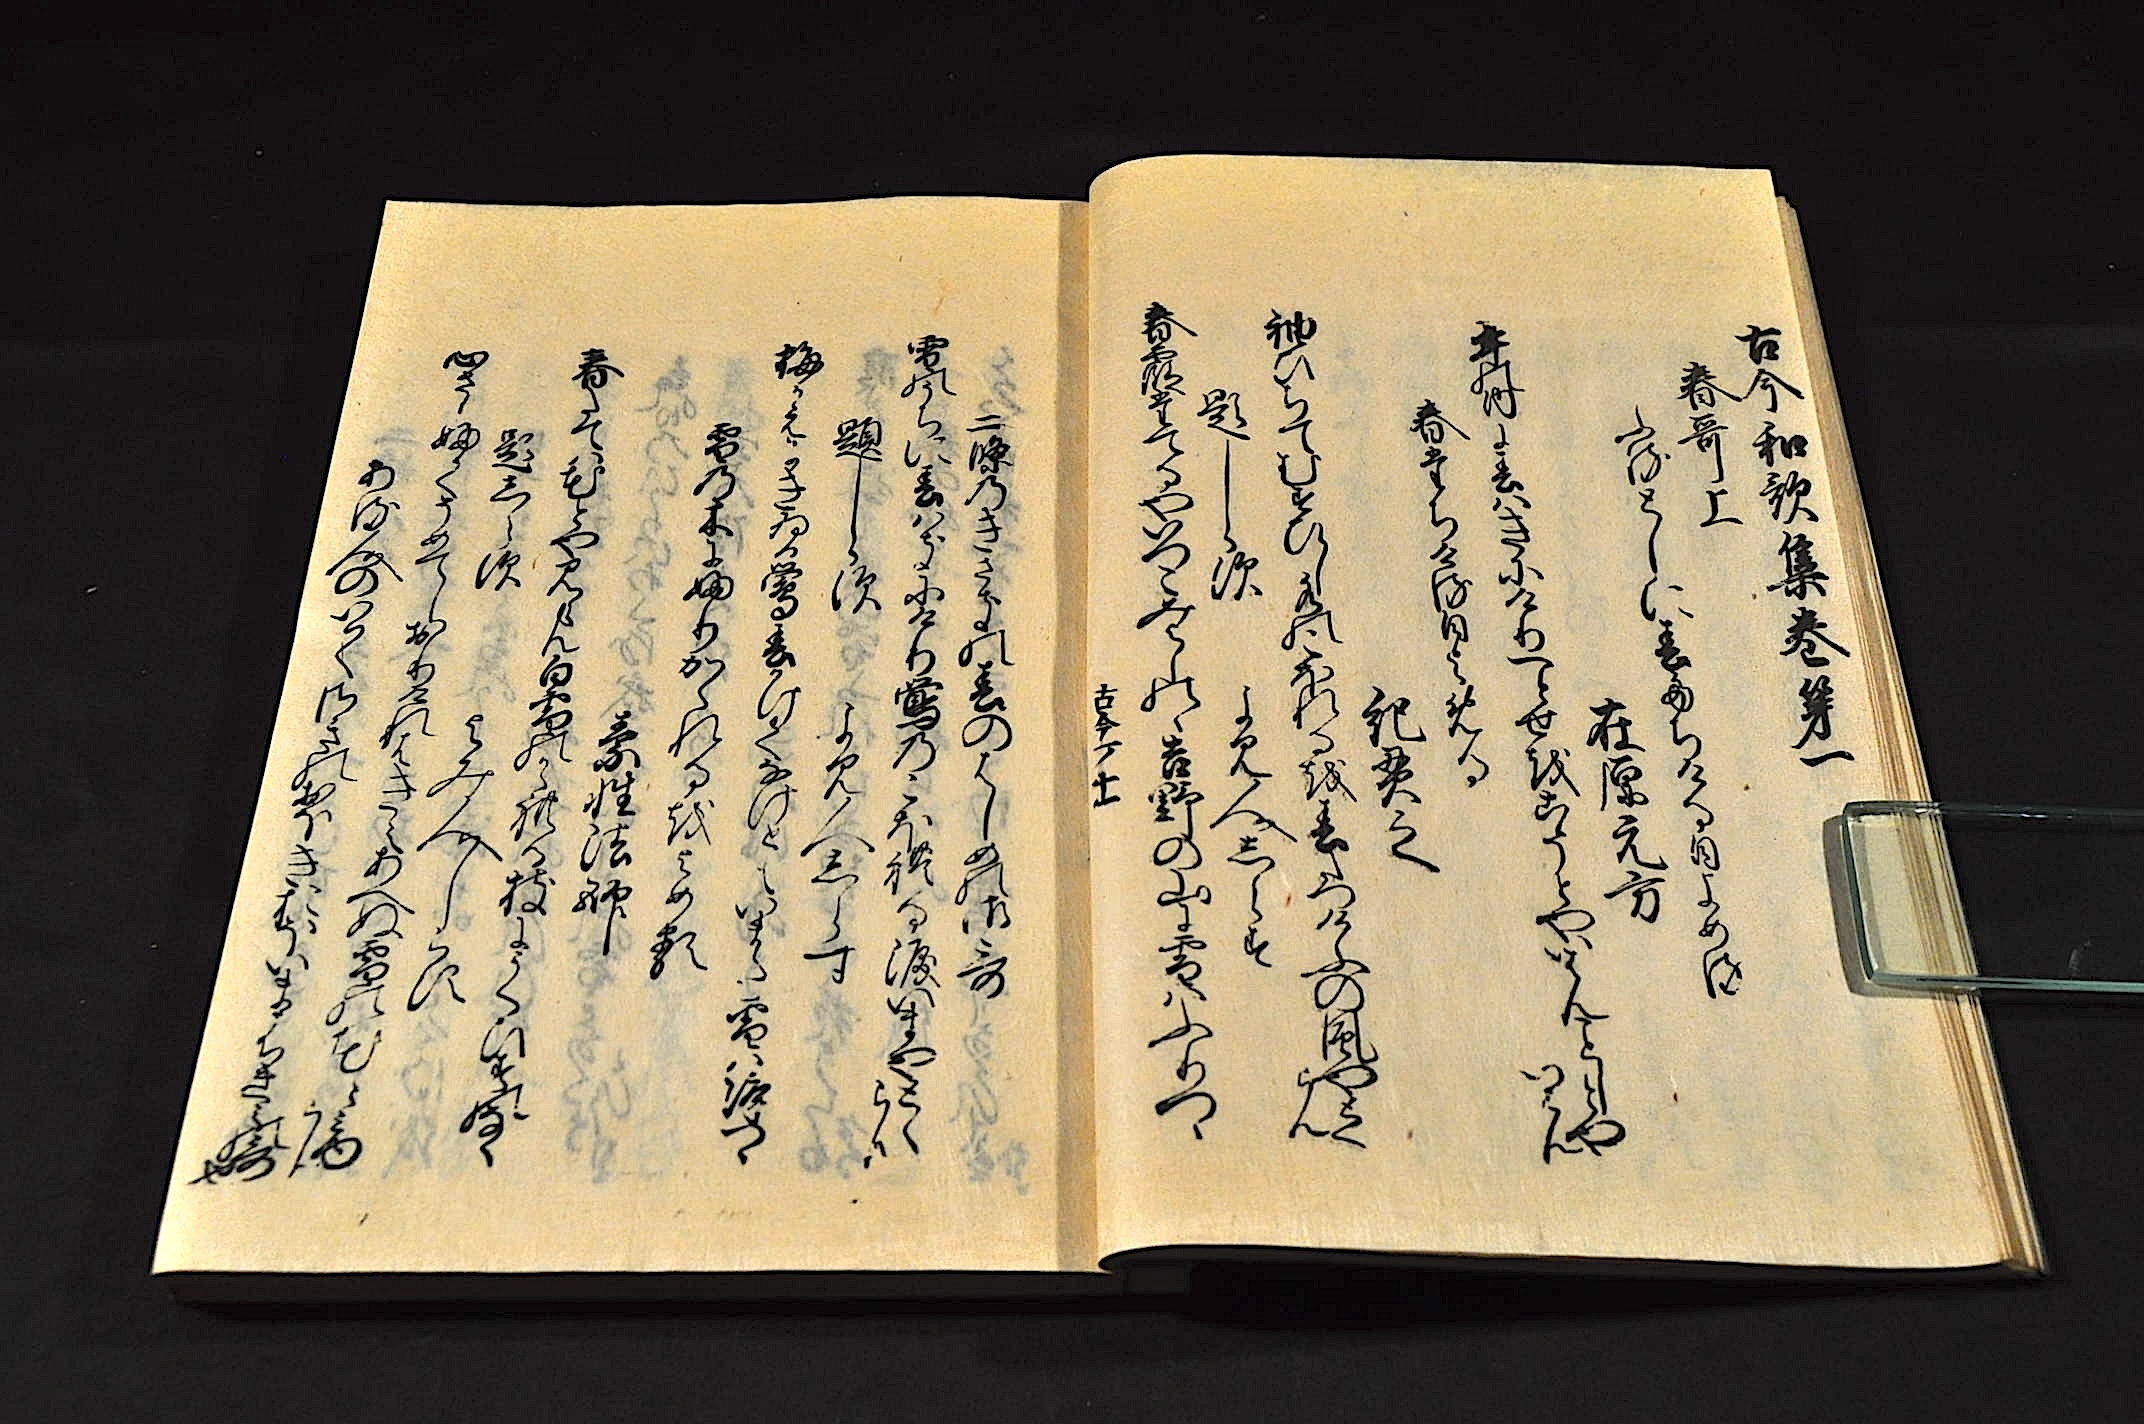 古今和歌集巻第一
春哥上
ふるとしに春たちける日よめる
在原元方
年の内に春はきにけり一とせをこそとやいはんことしとや
いはん
春たちける日よめる
紀貫之
袖ひちてむすひし水のこほれるを春たつけふの風やとく
らん
題しらす
よみ人しらす
春霞たてるやいつこみよしのゝ吉野の山に雪はふりつゝ
古今上
二條のきさきの春のはしめの御哥
雪の内に春はきにけり鶯のこほれる涙いまやとく
らん
題しらす
よみ人しらす
梅かえにきゐる鶯春かけてなけともいまた雪はふりつゝ
雪の木にふりかゝれるをよめる
素性法師
春たては花とやみらん白雪のかゝれる枝にうくひすのなく
題しらす
よみ人しらす
心さしふかくそめてしおりけれはきえあへぬ雪の花と
みゆらん
ある人のいはくさきのおほきおほいまうちきみの哥
也